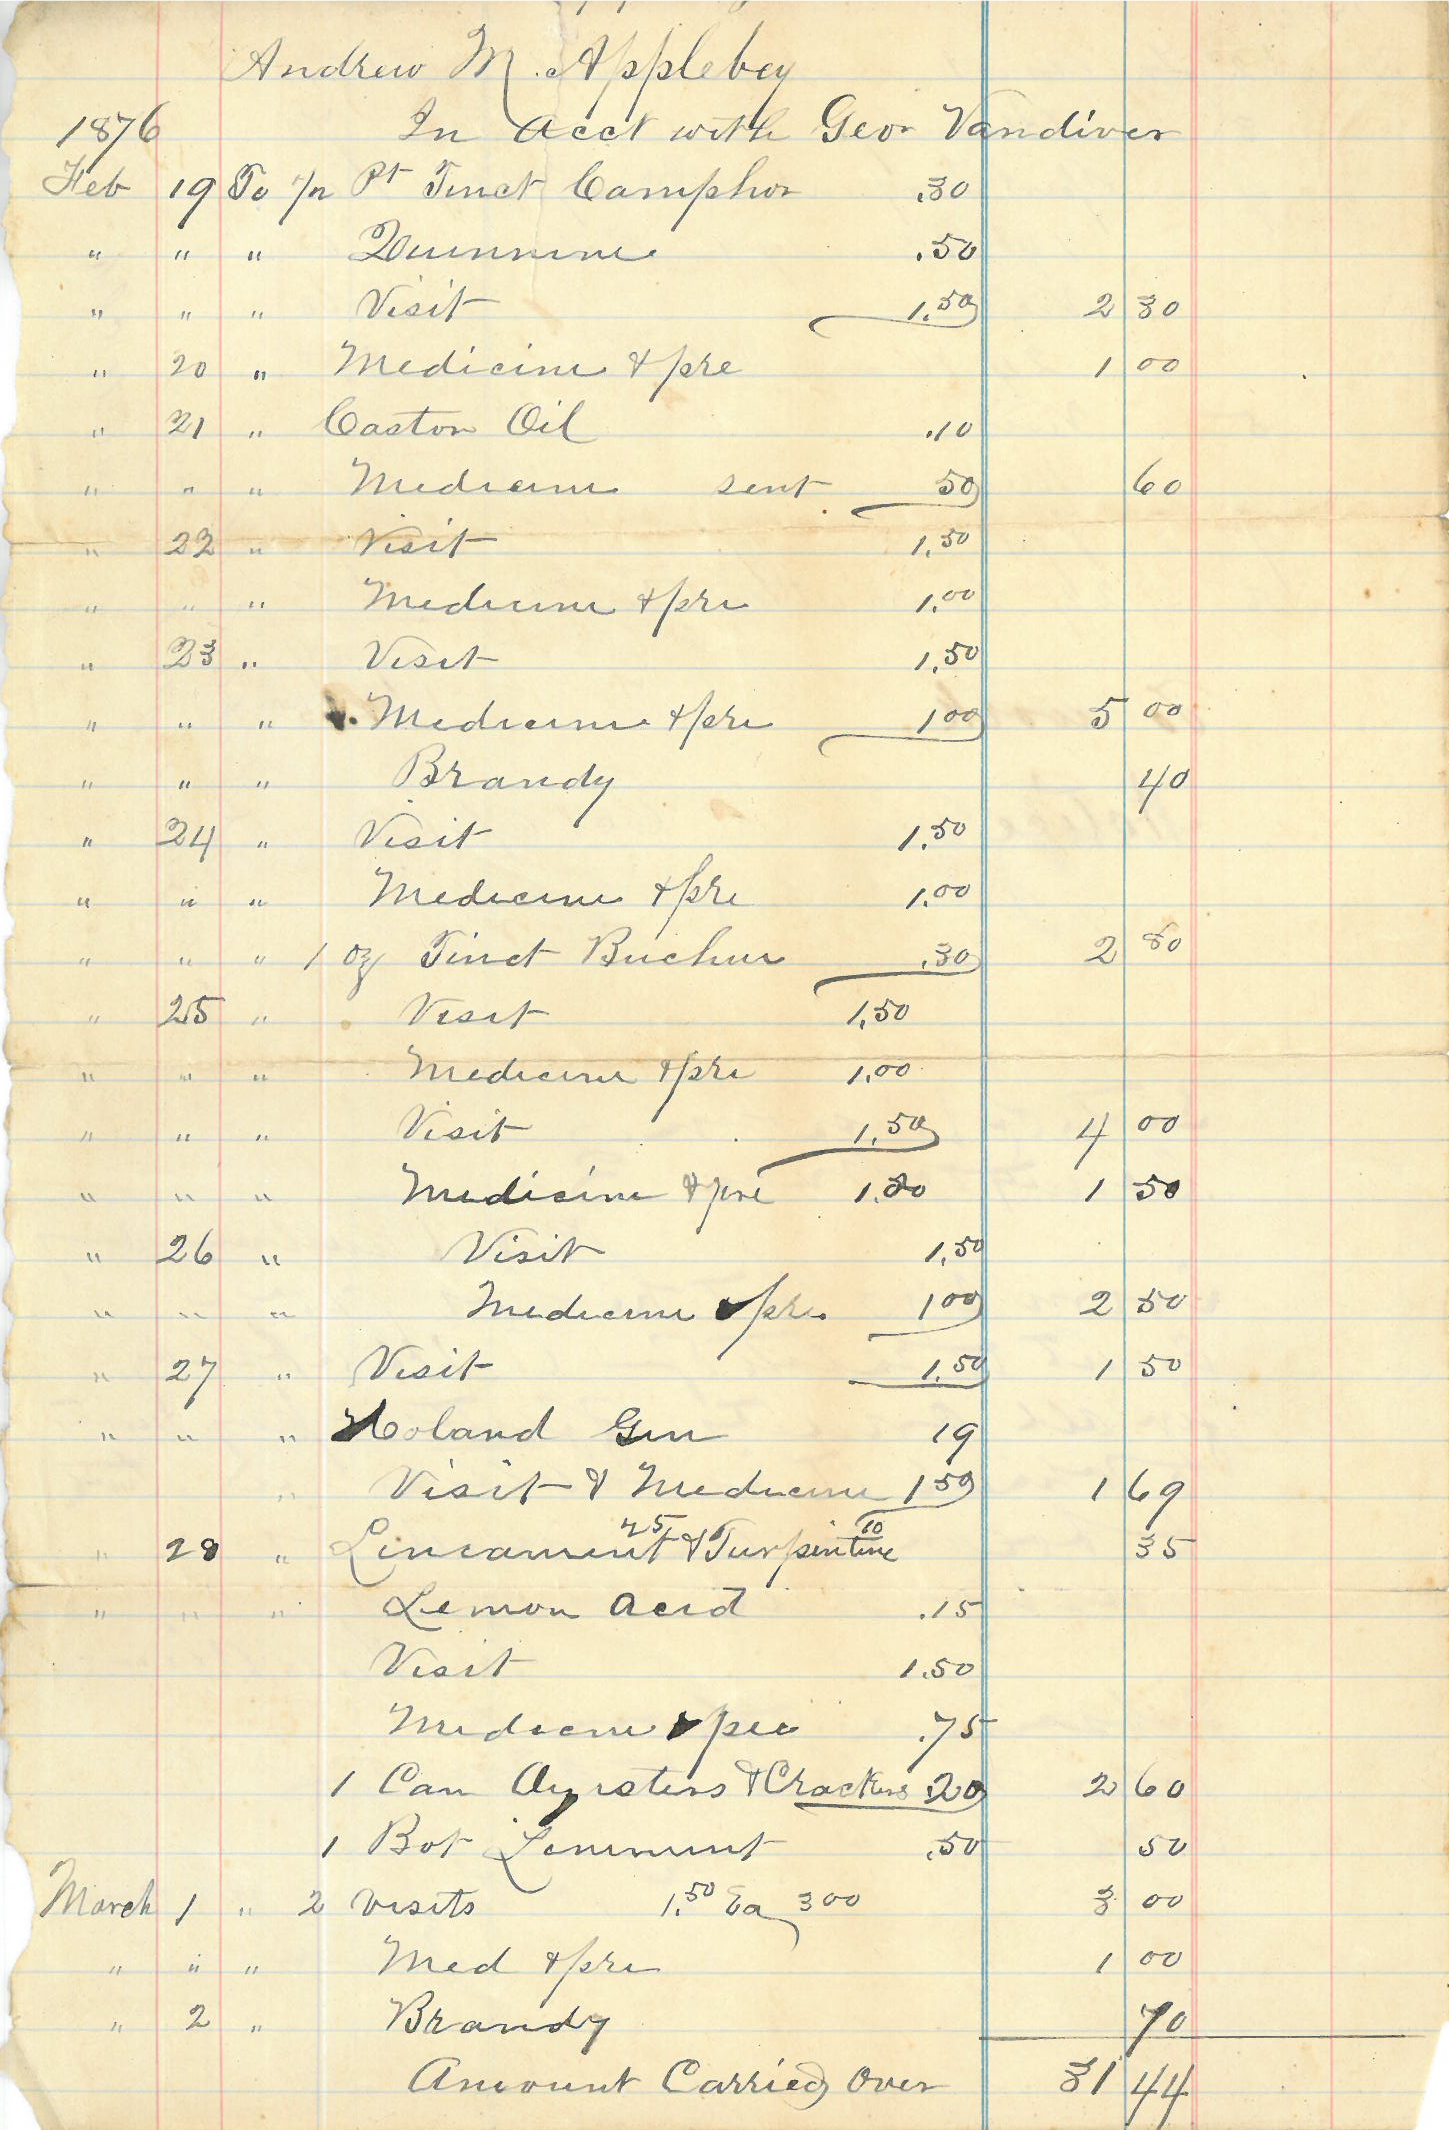 Andrew M. Appleby
1876 In acct with Geo. Vandiver
Feb 19 To 1/2 Pt Tinct Camphor .30
" " " Quinnine .50
" " " Visit 1.50 2 30
" 20 " Medicine & pre 1 00
" 21 " Castor Oil .10
" " " Medicine sent 50 60
" 22 " Visit 1.50
" " " Medicine & pre 1.00
" 23 " Visit 1.50
" " " Medicine & pre 1 00 5 00
" " " Brandy 40
" 24 " Visit 1.50
" " " Medicine & pre 1.00
" " " 1 oz Tinct Buchu .30 2 80
" 25 " Visit 1.50
" " " Medicine & pre 1.00
" " " Visit 1.50 4 00
" " " Medicine & pre 1 50
" 26 " Visit 1.50
" " " Medicine & pre 1 00 2 50
" 27 " Visit 1.50 1 50
" " " Holand Gin 19
" Visit & Medicine 1 50 1 69
" 28 " Lineament 25 & Turpintine 10 35
" " " Lemon Acid .15
Visit 1.50
Medicine & pre .75
1 Can Oyrsters & Crackers 20 2 60
1 Bot Leniment .50 50
March 1 " 2 Visits 1.50 Ea 3 00 3 00
" " " Med & pre 1 00
" 2 " Brandy 70
Amount Carried Over 31 44